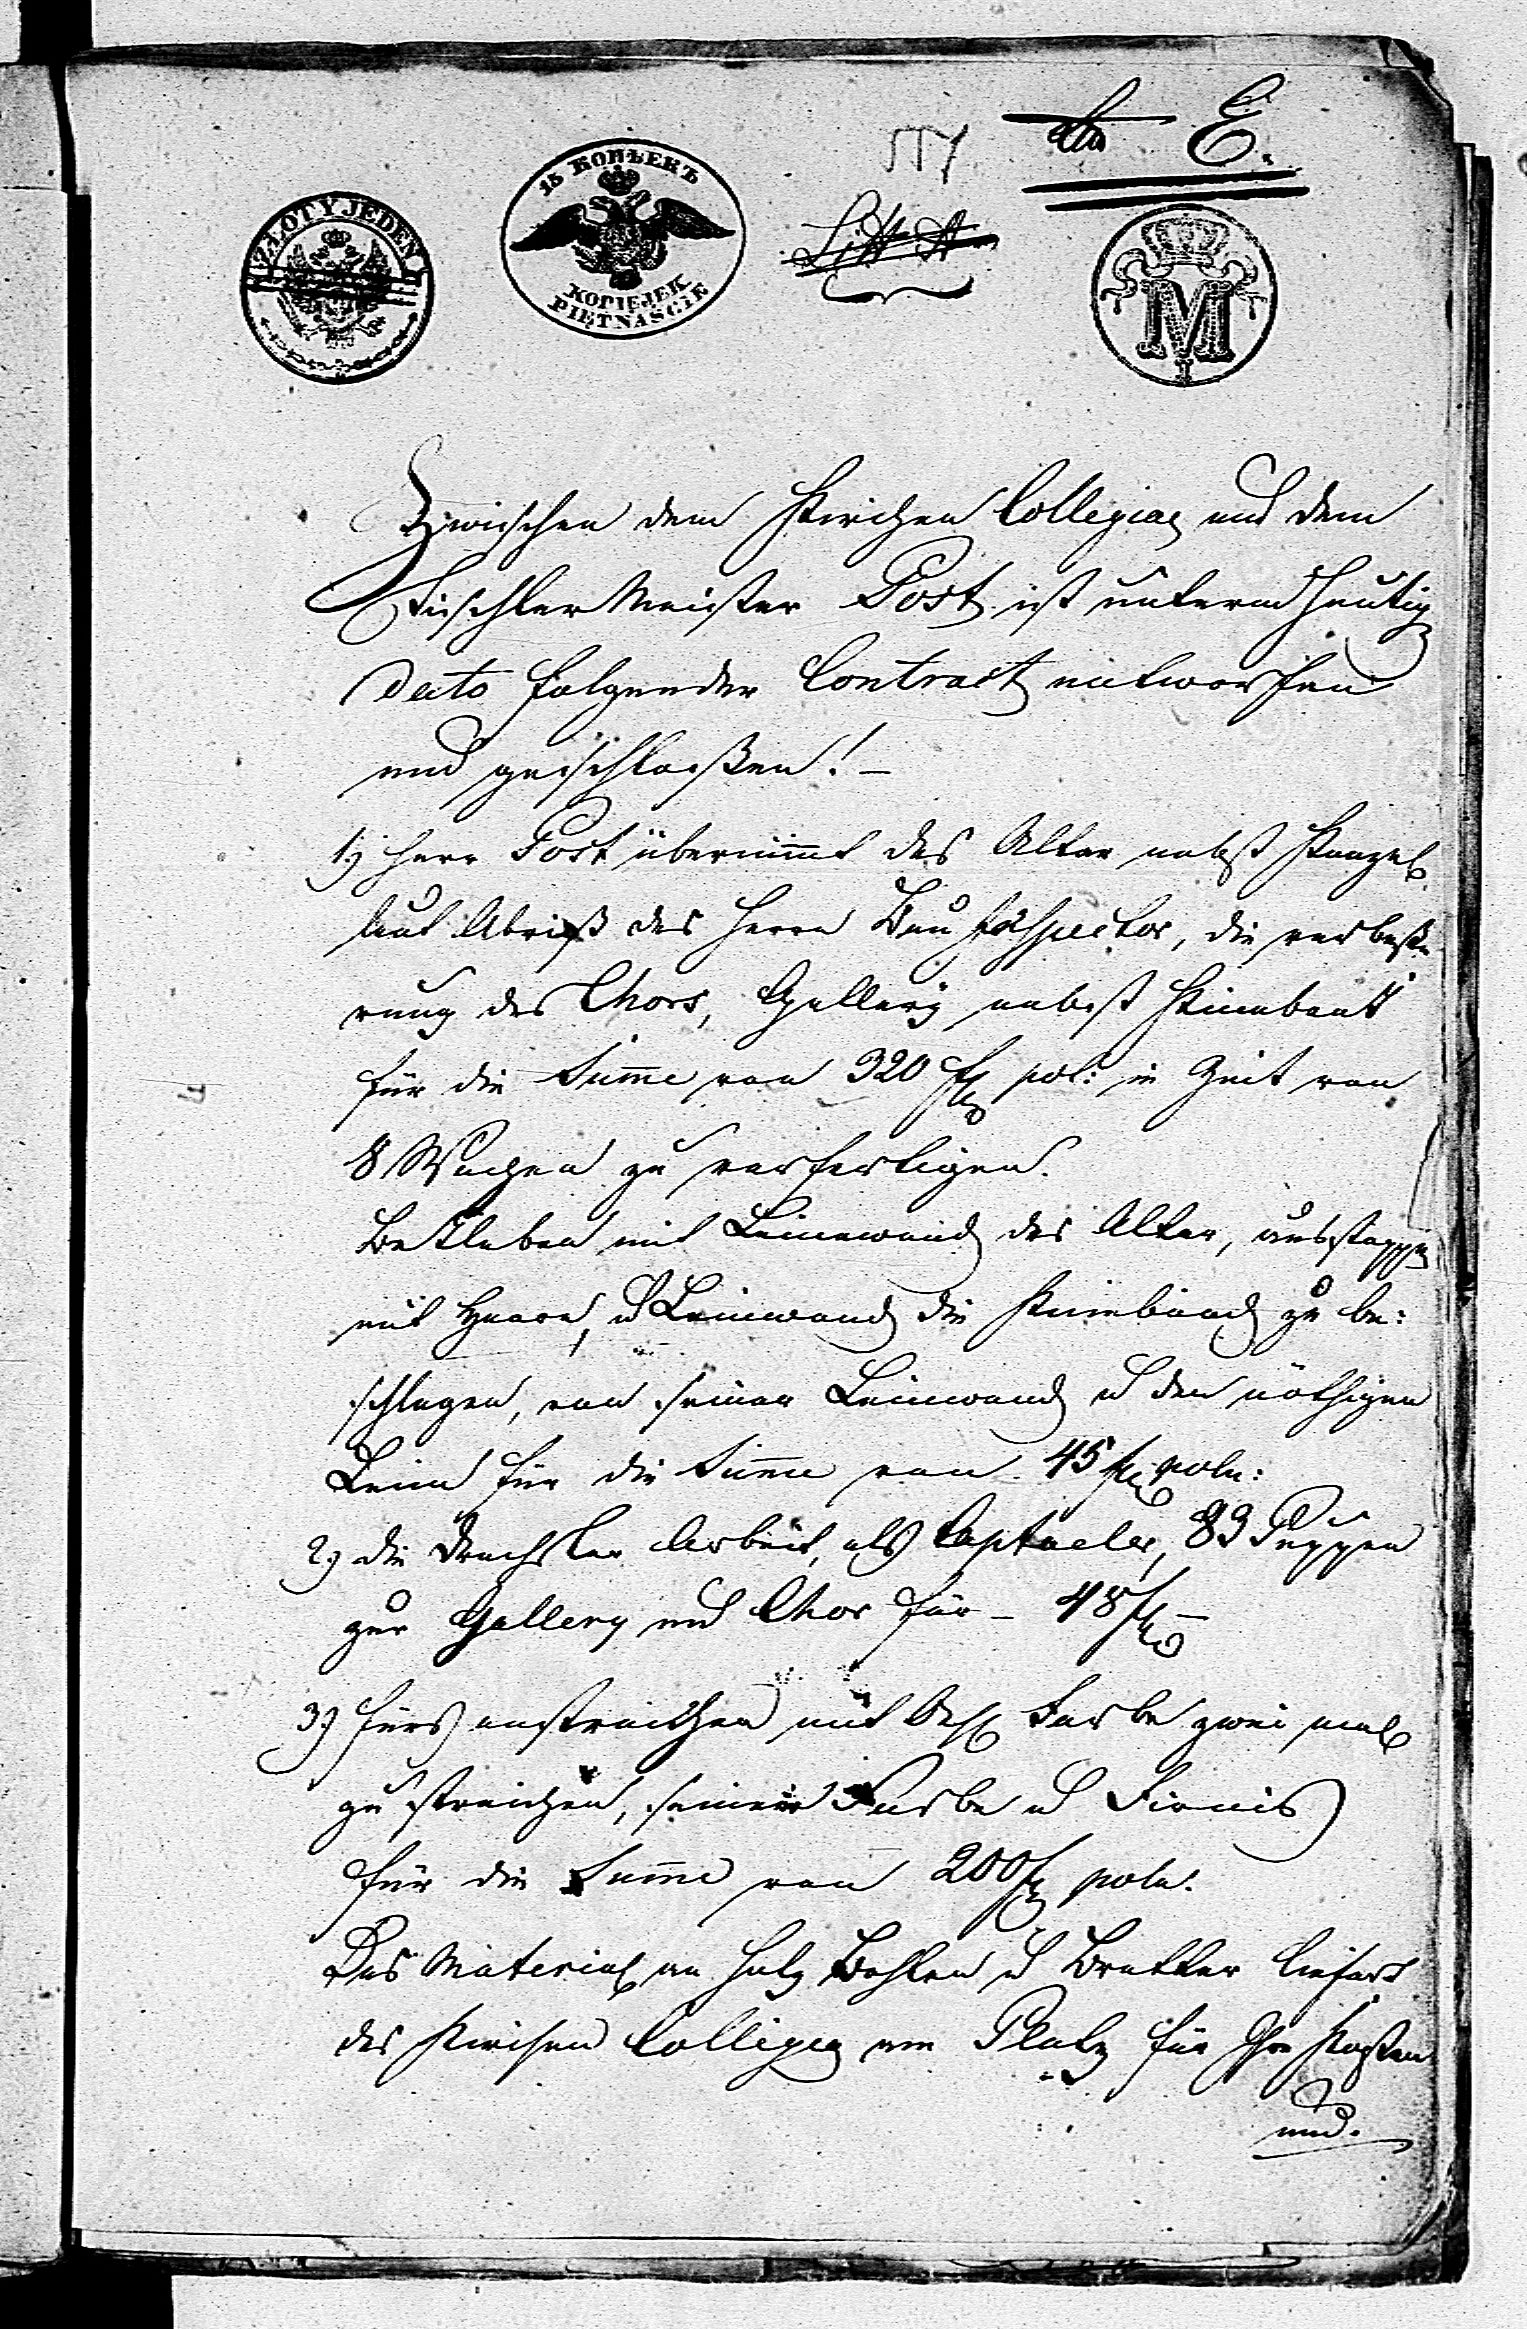 E.
ZŁOTY JEDEN
15 КОПѢЕКЪ
KOPIEJEK
PIĘTNAŚCIE
Litt A
M
Zwischen dem Kirchen Collegiae und dem
Tischler Meister Post ist unterm heutig
Dato folgender Contract entworfen
und geschloßen! –
1) Herr Post übernimmt des Altar nebst Kanzel
laut Abriß des Herrn Bau Inspector, die verbeße
rung des Chors, Gallery nebst
für die Summe von 320 fl pol: in Zeit von
8 Wochen zu verfertigen.
Bekleben mit Leinewand des Altar, ausstoppen
mit Haare, u Leinwand die zu be:
schlagen, von seiner Leinwand u den nöthigen
Leim für die Summe von 45 fl poln:
2) die Drechsler Arbeit, als Captaeler, 83 Puppen
zur Gallery und Chor für – 48 fl –
3) fürs anstreichen mit Oehl Farbe zwei mal
zu streichen, seiner Farbe u Firnis
für die Summe von 200 fl poln.
Das Material an Holz Bohlen u Bretter liefert
des Kirchen Collegia am Platz für Ihre Kosten
und.